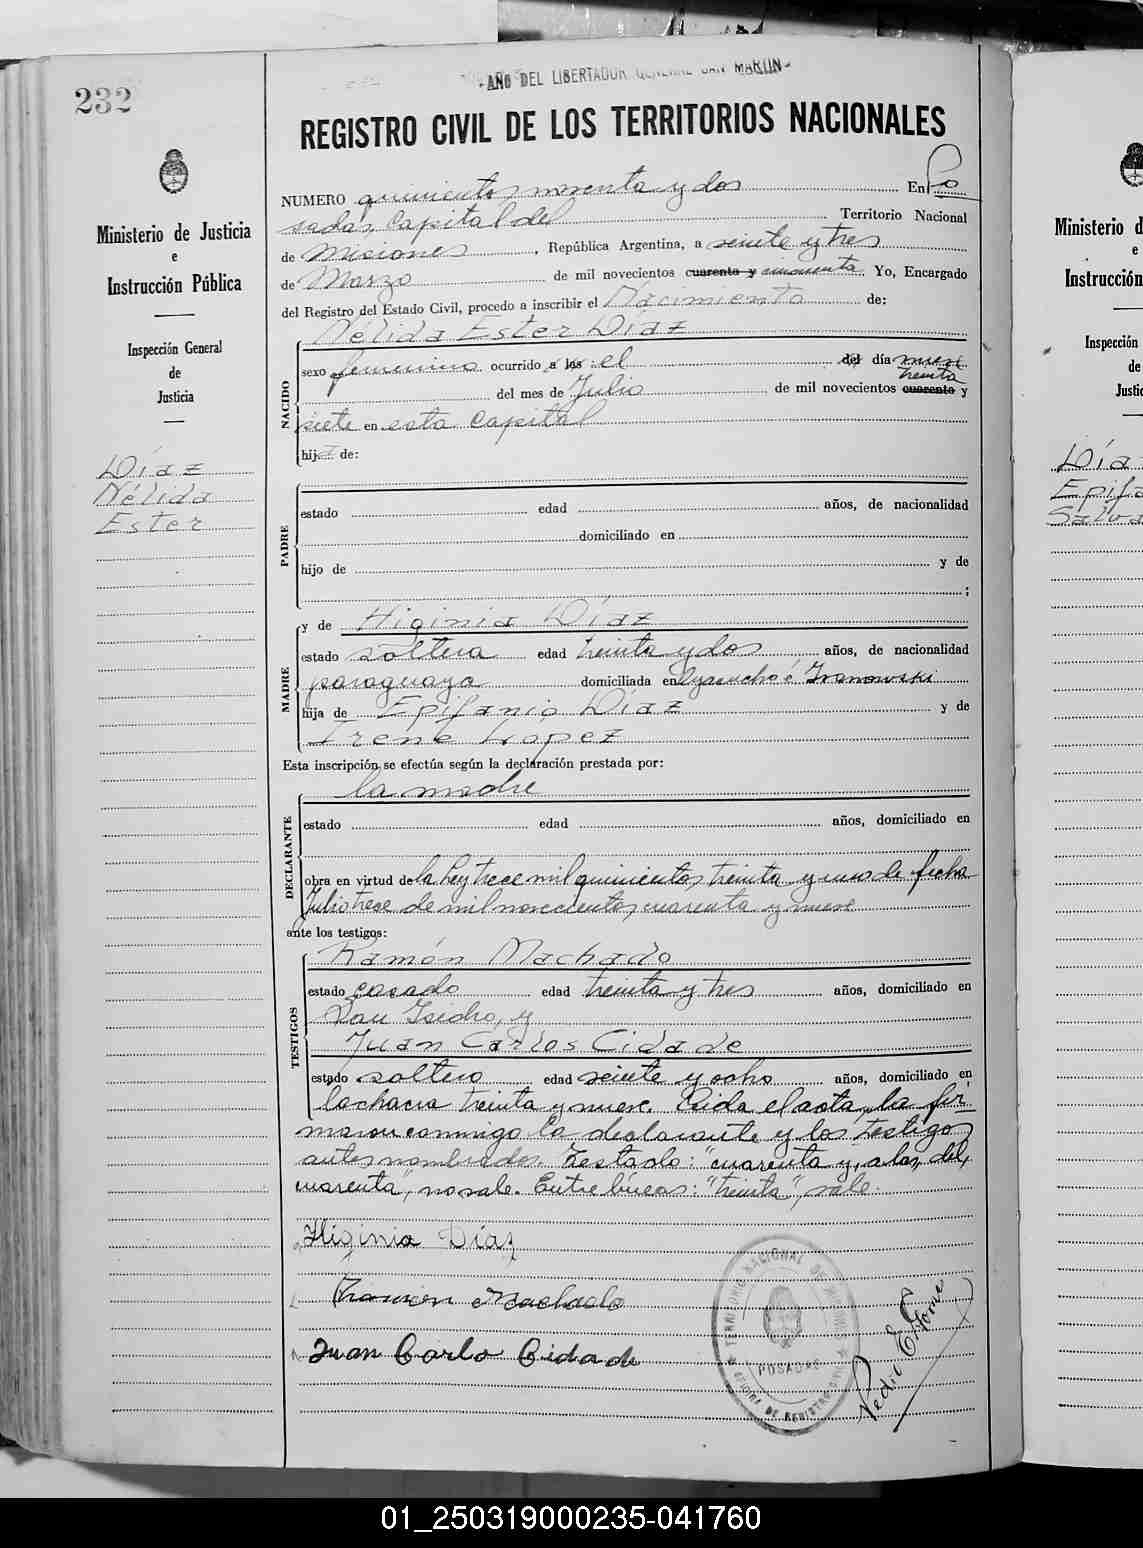 - AÑO DEL LIBERTADOR GENERAL SAN MARTIN -
232
REGISTRO CIVIL DE LOS TERRITORIOS NACIONALES
Ministerio de Justicia
e
Instrucción Pública
Inspección General
de
Justicia
Díaz
Nélida
Ester
NUMERO quinientos noventa y dos En Po
sadas, Capital del Territorio Nacional
de Misiones, República Argentina, a veinte y tres
de Marzo de mil novecientos cuarenta y cincuenta Yo, Encargado
del Registro del Estado Civil, procedo a inscribir el Nacimiento de:
Nélida Ester Díaz
NACIDO
sexo femenino ocurrido a las el del día nueve
treinta
del mes de Julio de mil novecientos cuarenta y
siete en esta Capital
hija de:
PADRE
estado edad años, de nacionalidad
domiciliado en
hijo de y de
;
y de Higinia Díaz
MADRE
estado soltera edad treinta y dos años, de nacionalidad
paraguaya domiciliada en Ayacucho é Ivanowski
hija de Epifanio Díaz y de
Irene Lopez
Esta inscripción se efectúa según la declaración prestada por:
la madre
DECLARANTE
estado edad años, domiciliado en
obra en virtud de la Ley trece mil quinientos treinta y uno de fecha
Julio trece de mil novecientos cuarenta y nueve
ante los testigos:
Ramón Machado
TESTIGOS
estado casado edad treinta y tres años, domiciliado en
San Isidro, y
Juan Carlos Cidade
estado soltero edad veinte y ocho años, domiciliado en
la chacra treinta y nueve. Leida el acta, la fir-
maron conmigo la declarante y los testigos
antes nombrados. Testado: "cuarenta y, a las, del,
cuarenta", no vale. Entre líneas: "treinta", vale.
Higinia Díaz
Ramón Machado
Juan Carlo Cidade
TERRITORIO NACIONAL DE MISIONES
POSADAS
OFICINA DE REGISTRO CIVIL
Pedro E.
Ministerio d
e
Instrucción
Inspección
de
Justic
Día
Epifa
Salva
01_250319000235-041760